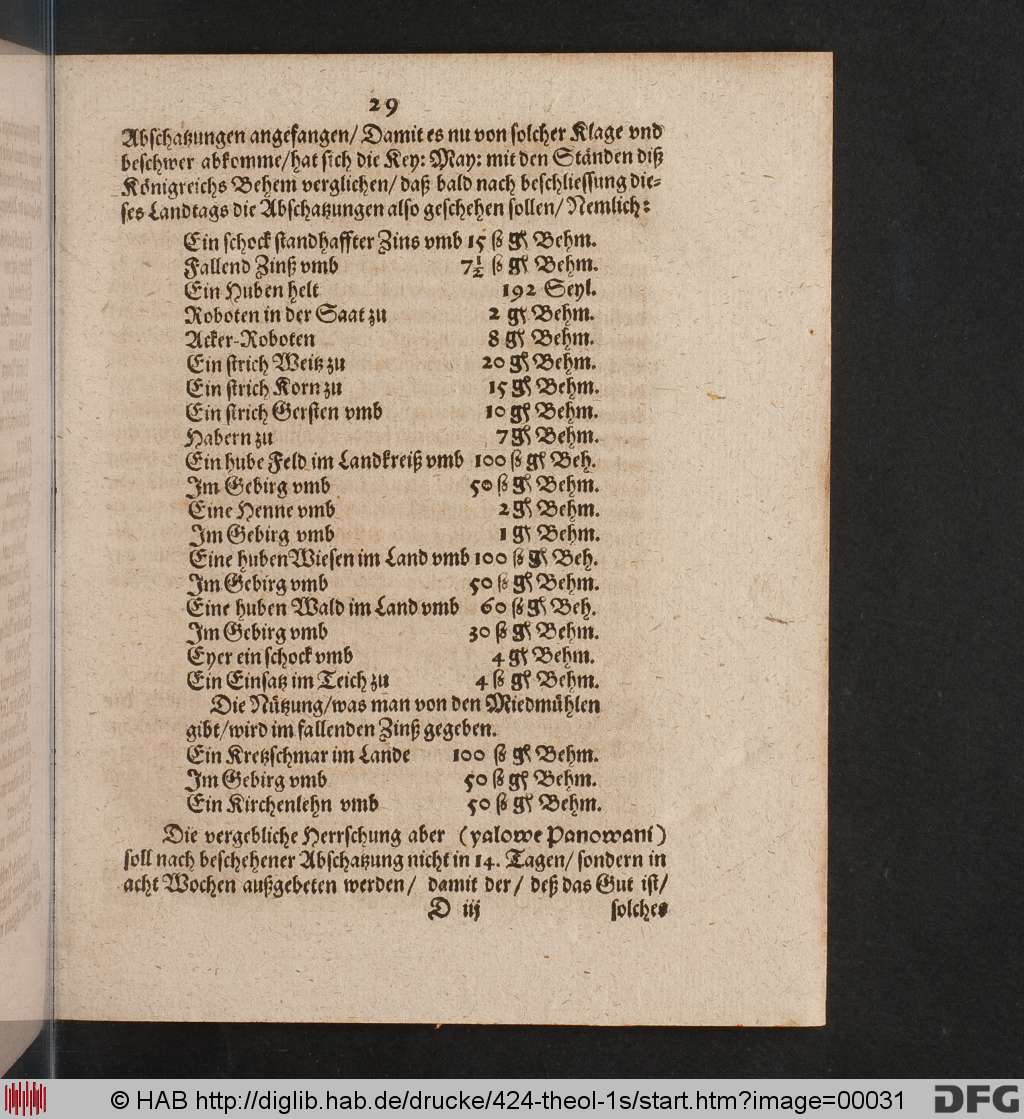 29
Abschatzungen angefangen/ Damit es nu von solcher Klage vnd
beschwer abkomme/hat sich die Key: May: mit den Ständen diß
Königreichs Behem verglichen/ daß bald nach beschliessung die⸗
ses Landtags die Abschatzungen also geschehen sollen/ Nemlich:
Ein schock standhaffter Zins vmb 15 ß gℓ Behm.
Fallend Zinß vmb 7½ ß gℓ Behm.
Ein Huben helt 192 Seyl.
Roboten in der Saat zu 2 gℓ Behm.
Acker-Roboten 8 gℓ Behm.
Ein strich Weitz zu 20 gℓ Behm.
Ein strich Korn zu 15 gℓ Behm.
Ein strich Gersten vmb 10 gℓ Behm.
Habern zu 7 gℓ Behm.
Ein hube Feld im Landkreiß vmb 100 ß gℓ Beh.
Im Gebirg vmb 50 ß gℓ Behm.
Eine Henne vmb 2 gℓ Behm.
Im Gebirg vmb 1 gℓ Behm.
Eine huben Wiesen im Land vmb 100 ß gℓ Beh.
Im Gebirg vmb 50 ß gℓ Behm.
Eine huben Wald im Land vmb 60 ß gℓ Beh.
Im Gebirg vmb 30 ß gℓ Behm.
Eyer ein schock vmb 4 gℓ Behm.
Ein Einsatz im Teich zu 4 ß gℓ Behm.
Die Nützung/was man von den Miedmühlen
gibt/wird im fallenden Zinß gegeben.
Ein Kretzschmar im Lande 100 ß gℓ Behm.
Im Gebirg vmb 50 ß gℓ Behm.
Ein Kirchenlehn vmb 50 ß gℓ Behm.
Die vergebliche Herrschung aber (yalowe Panowani)
soll nach beschehener Abschatzung nicht in 14. Tagen/ sondern in
acht Wochen außgebeten werden/ damit der/ deß das Gut ist/
D iij solches
© HAB http://diglib.hab.de/drucke/424-theol-1s/start.htm?image=00031
DFG